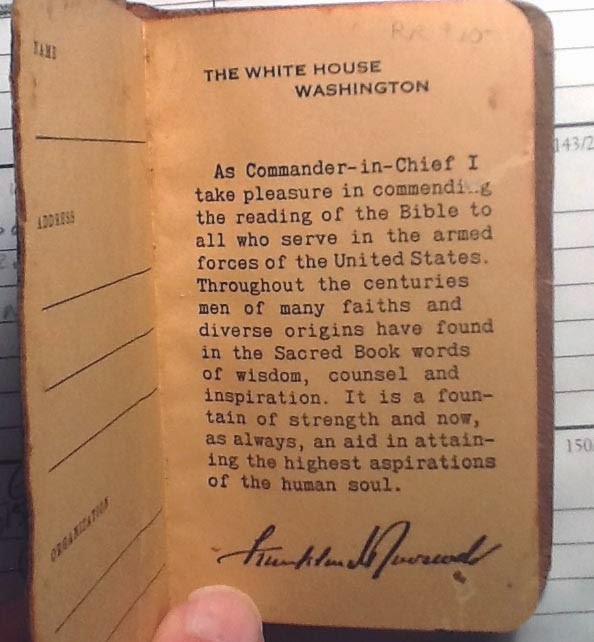 NAME
ADDRESS
ORGANIZATION
THE WHITE HOUSE
WASHINGTON
As Commander-in-Chief I
take pleasure in commending
the reading of the Bible to
all who serve in the armed
forces of the United States.
Throughout the centuries
men of many faiths and
diverse origins have found
in the Sacred Book words
of wisdom, counsel and
inspiration. It is a foun-
tain of strength and now,
as always, an aid in attain-
ing the highest aspirations
of the human soul.
Franklin D Roosevelt
143/2
150